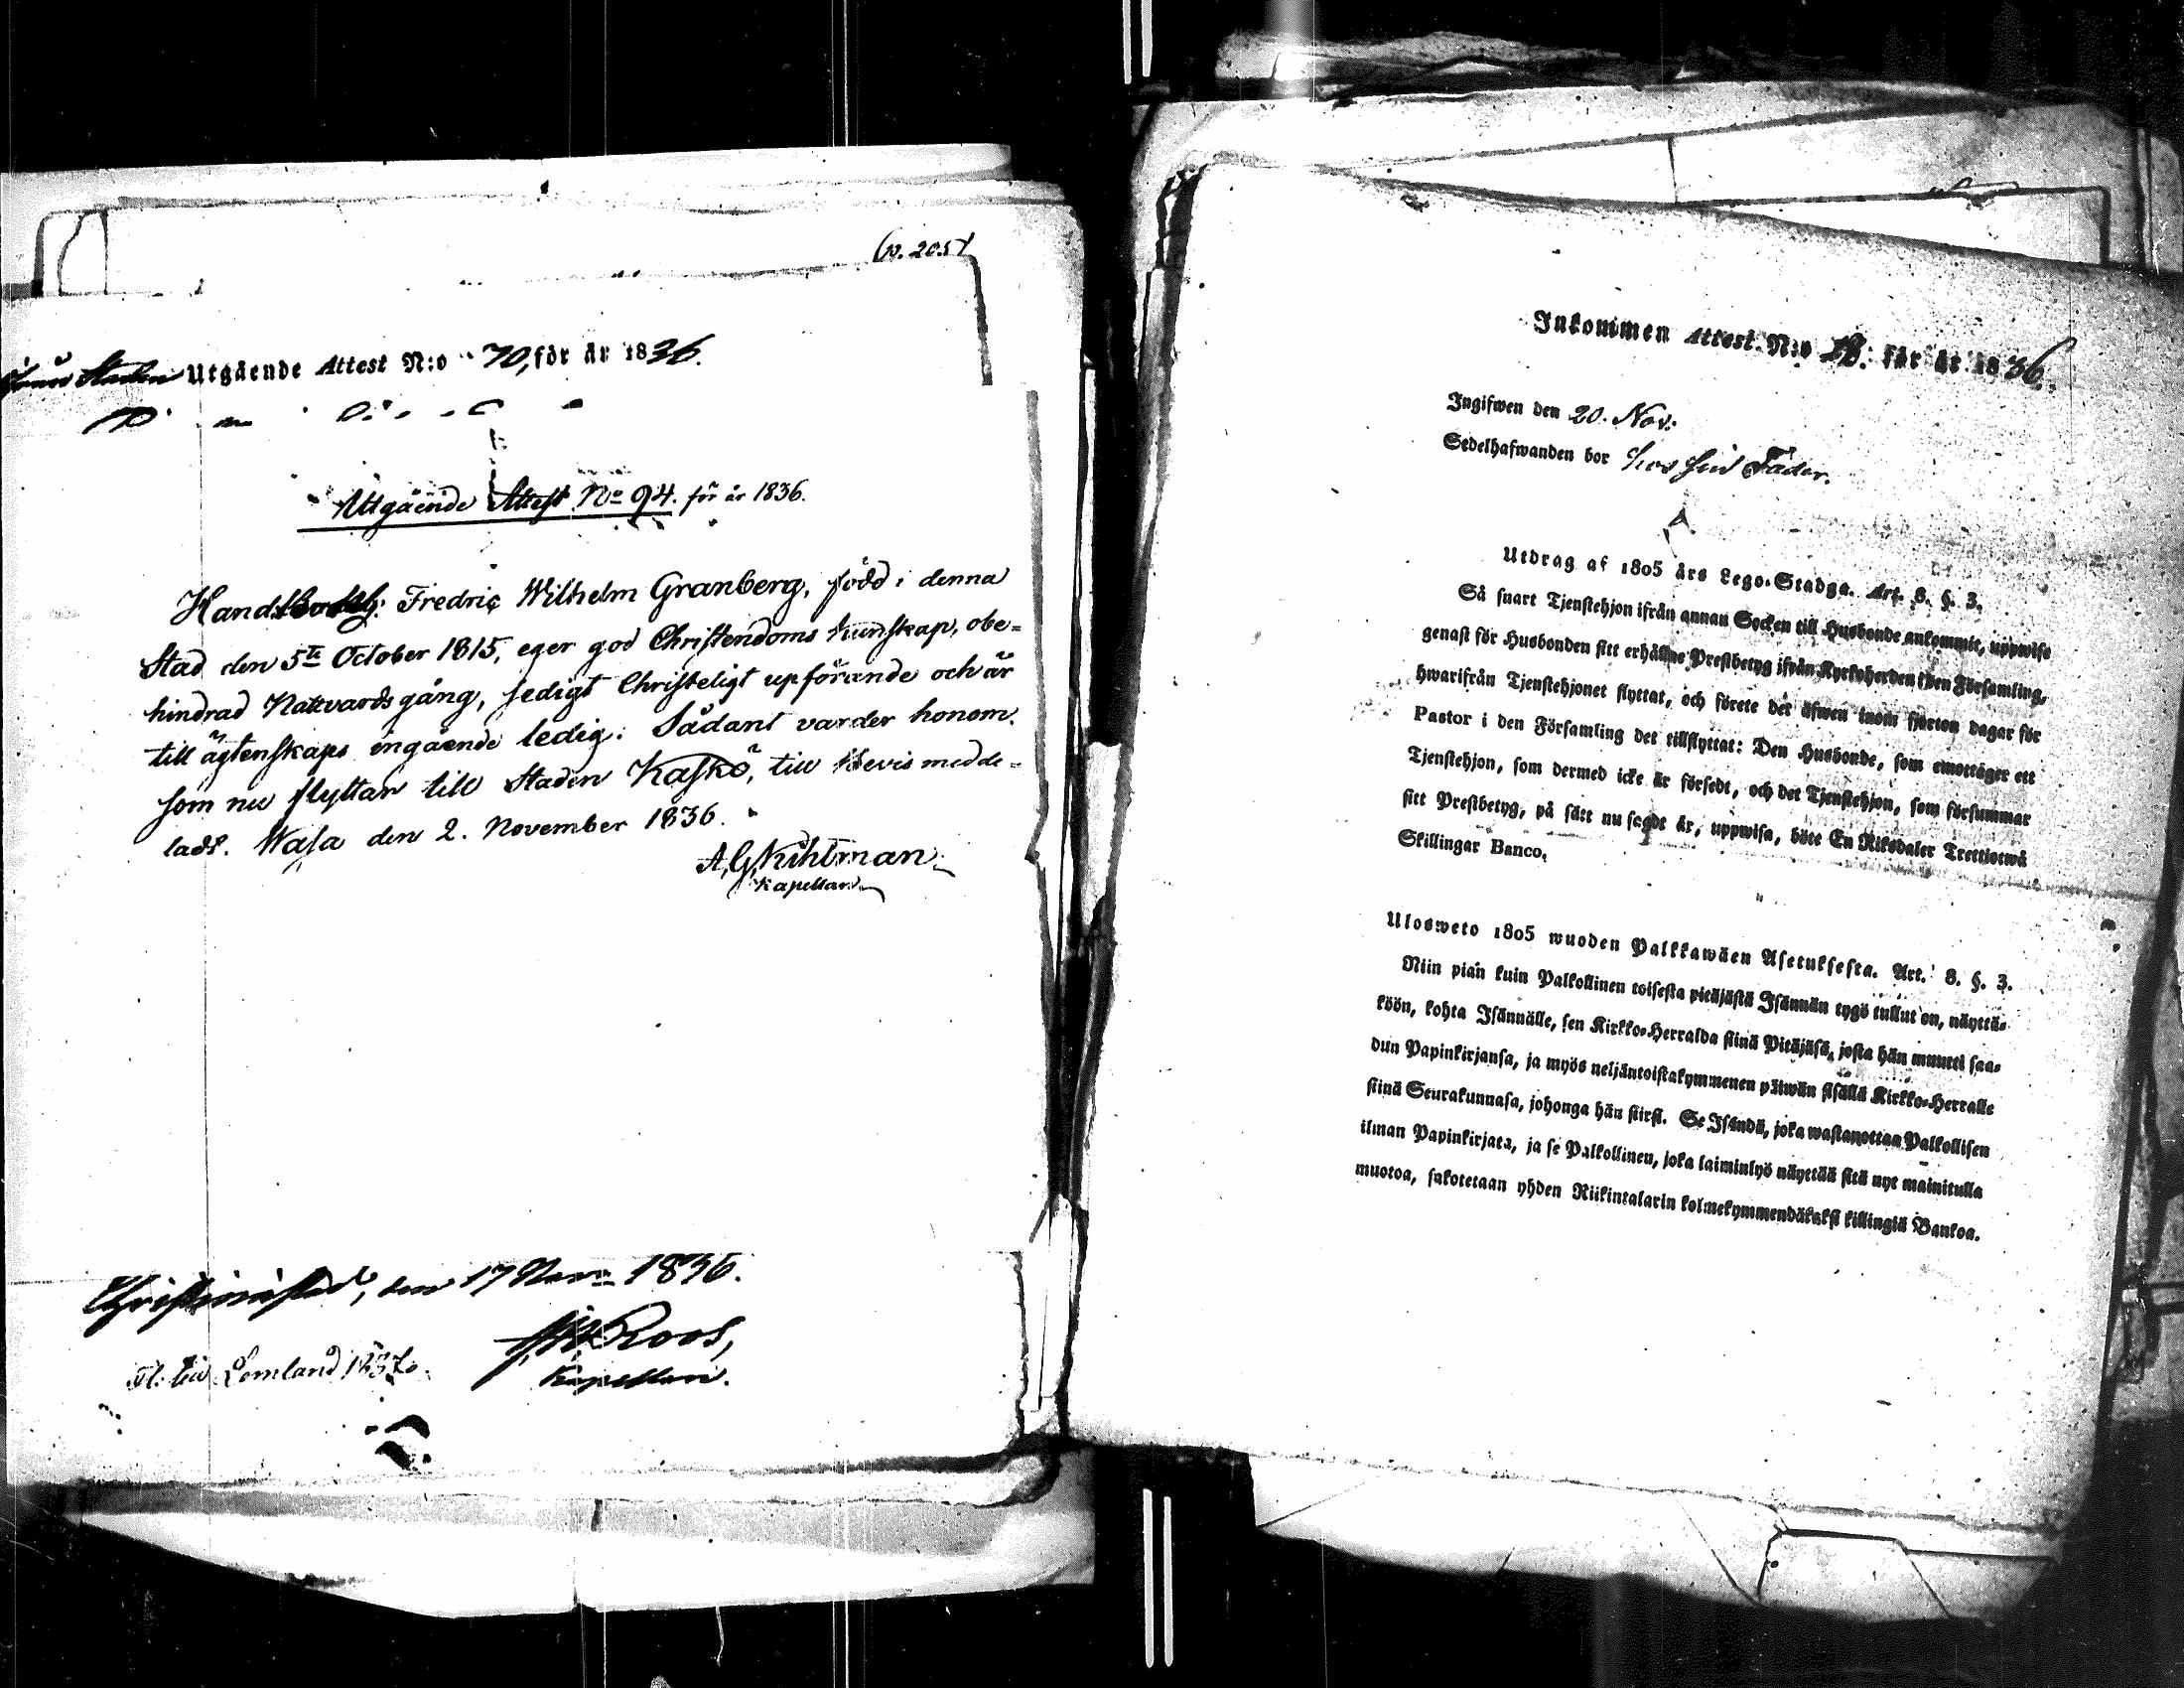 (p. 205)
Utgående Attest N:o 70, för år 1836.
Utgående Attest No 94. för år 1836.
Hand: Fredric Wilhelm Granberg, född i denna
Stad den 5te October 1815, eger god Christendoms kunskap, obe=
hindrad Nattvardsgång, sedigt Christeligt upförande och är
till ägtenskaps ingående ledig. Sådant varder honom,
som nu flyttar till Staden Kaskö, till bevis medde=
ladt. Wasa den 2. November 1836.
A. G. Kihlman
Kapellan
Christinestad, den 17 1836.
Roos,
Kapellan.
Fl. till Lomland
Inkommen Attest. N:o för år 1836.
Ingifwen den 20. Nov:
Sedelhafwanden bor hos sin Fader.
Utdrag af 1805 års Lego-Stadga. Art. 8. §. 3.
Så snart Tjenstehjon ifrån annan Socken till Husbonde ankommit, uppwise
genast för Husbonden sitt erhållne Prestbetyg ifrån Kyrkoherden i den Församling,
hwarifrån Tjenstehjonet flyttat, och förete det äfwen inom fjorton dagar för
Pastor i den Församling det tillflyttat: Den Husbonde, som emottager ett
Tjenstehjon, som dermed icke är försedt, och det Tjenstehjon, som försummar
sitt Prestbetyg, på sätt nu sagdt är, uppwisa, böte En Riksdaler Trettiotwå
Skillingar Banco.
Ulosweto 1805 wuoden Palkkawäen Asetuksesta. Art. 8. §. 3.
Niin pian kuin Palkollinen toisesta pitäjästä Isännän tygö tullut on, näyttä-
köön, kohta Isännälle, sen Kirkko-Herralda siinä Pitäjäsä, josta hän muutti saa-
dun Papinkirjansa, ja myös neljäntoistakymmenen päiwän sisällä Kirkko-Herralle
siinä Seurakunnasa, johonga hän siirsi. Se Isändä, joka wastanottaa Palkollisen
ilman Papinkirjata, ja se Palkollinen, joka laiminlyö näyttää sitä nyt mainitulla
muotoa, sakotetaan yhden Riikintalarin kolmekymmendäkaksi killingiä Bankoa.